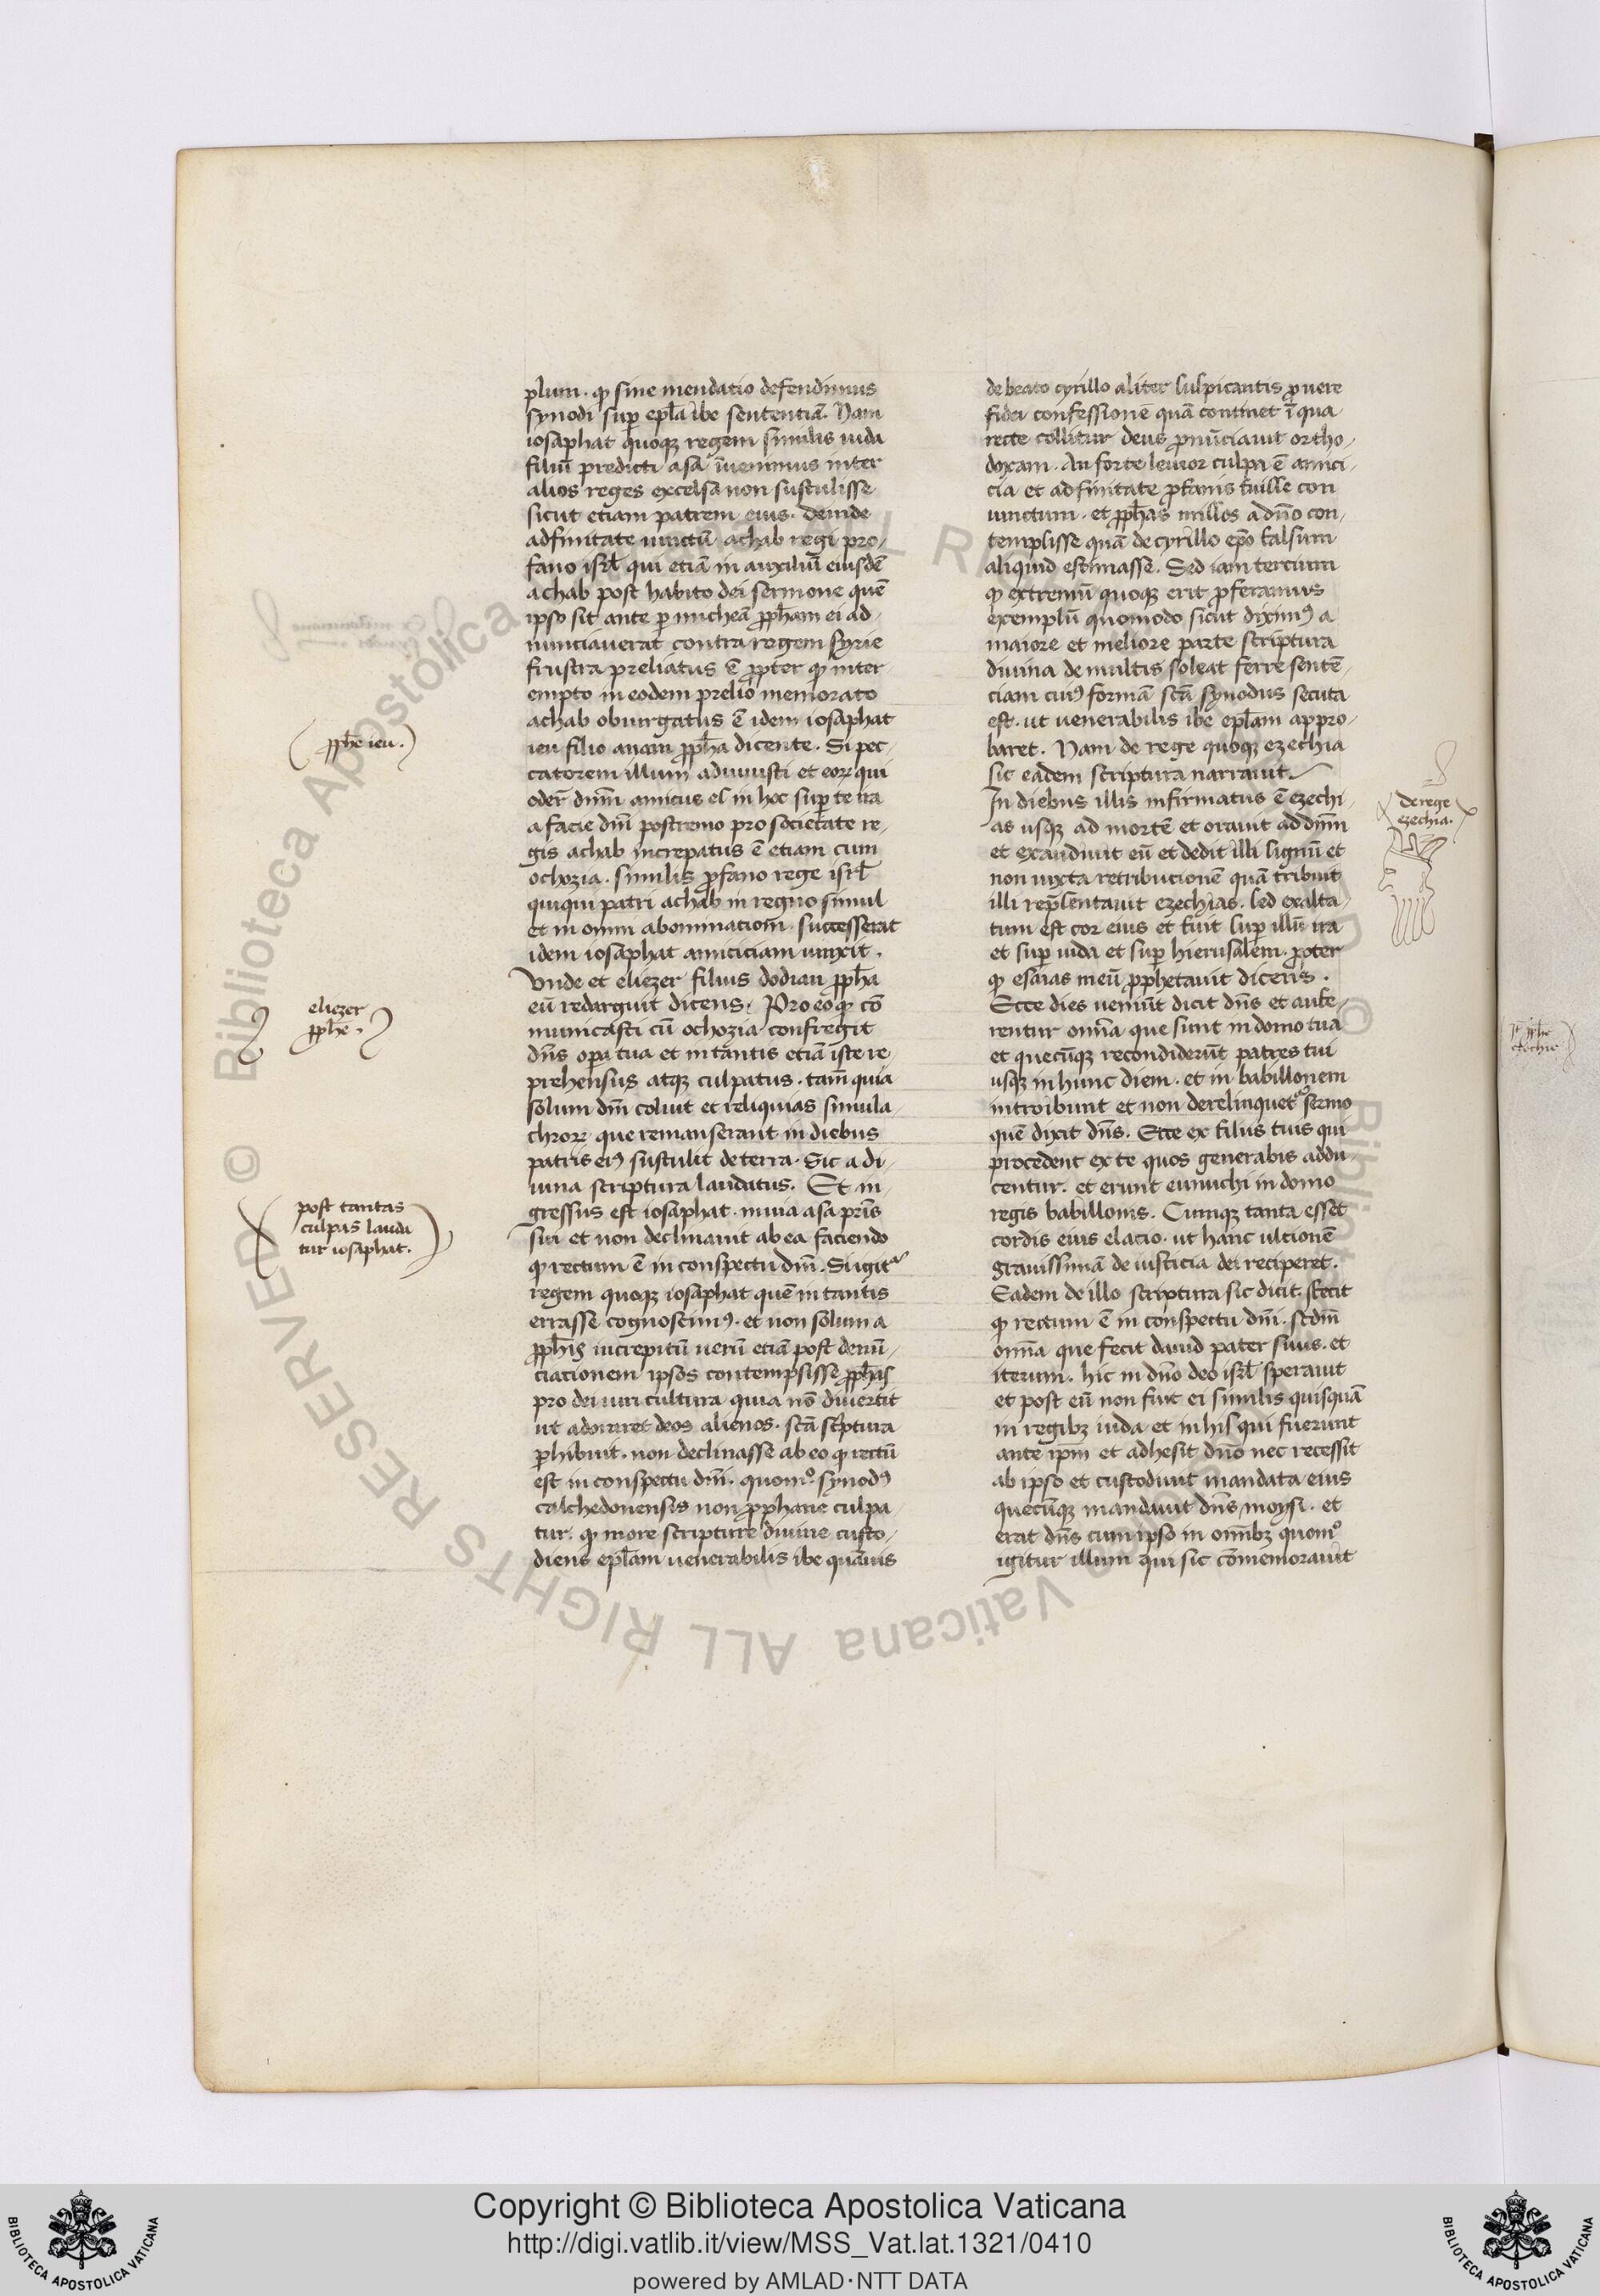 plum. ꝙ sine mendatio defendimus
synodi suꝑ epl̄a ibe sententiā. Nam
iosaphat quoqꝫ regem similis iuda
filiū predicti asa īuenimus inter
alios reges excelsa non sustulisse
sicut etiam patrem eius. deinde
adfinitate iunctū achab regi pro-
fano isrl̄ qui etiā in auxiliū eiusdē
achab post habito dei sermone quē
ipso sit ante ꝑ micheā ꝓph̄am ei ad-
nunciauerat contra regem syrie
frustra preliatus ē ꝓpter ꝙ inter-
empto in eodem prelio memorato
achab obiurgatus ē idem iosaphat
ieu filio anam ꝓph̄a dicente. Si pec-
catorem illum adiuuisti et eoꝝ qui
oder̄ dn̄m amicus es in hoc suꝑ te ira
a facie dn̄i postremo pro societate re-
gis achab increpatus ē etiam cum
ochozia. similis ꝓfano rege isrl̄
quiqui patri achab in regno simul
et in omni abominacion̄ successerat
idem iosaphat amiciciam iunxit.
Vnde et eliezer filius dodian ꝓph̄a
eū redarguit dicens. Pro eo ꝙ cō
municasti cū ochozia confregit
dn̄s oꝑa tua et in tantis etiā iste re-
prehensus atqꝫ culpatus. tam̄ quia
solum dn̄i coluit et reliquias simula-
chroꝝ que remanserant in diebus
patris eiꝰ sustulit de terra. Sic a di-
uina scriptura laudatus. Et in-
gressus est iosaphat. in uia asa pr̄is
sui et non declinauit ab ea faciendo
ꝙ rectum ē in conspectu dn̄i. Si igit᷑
regem quoqꝫ iosaphat quē in tantis
errasse cognoscimꝰ. et non solum a
ꝓph̄is increpitū uerū etiā post denū-
ciacionem ipsos contempsisse ꝓph̄as
pro dei uiri cultura quia nō diuertit
ut adoraret deos alienos. scā scptura
ꝑhibuit. non declinasse ab eo ꝙ rectū
est in conspectu dn̄i. quomº synodꝰ
calchedonensis non ꝓphane culpa-
tur. ꝙ more scripture diuine custo-
diens epl̄am uenerabilis ibe quāuis
ꝓph̄e ieu.
eliezer
ꝓph̄e.
post tantas
culpas lauda
tur iosaphat.
de beato cyrillo aliter suspicantis ꝓ uere
fidei confessionē quā continet ī qua
recte collitur deus ꝓnūciauit ortho-
doxam. An forte leuior culpa ē amici-
cia et adfinitate ꝓfanis fuisse con
iunctum. et ꝓph̄as missos a dn̄o con-
templisse quā de cyrillo ep̄o falsum
aliquid estimasse. Sed iam tercium
ꝙ extremū quoqꝫ erit ꝓferamus
exemplū quomodo sicut diximꝰ a
maiore et meliore parte scriptura
diuina de multis soleat ferre sentē-
ciam cuiꝰ formā scā synodus secuta
est. ut uenerabilis ibe epl̄am appro-
baret. Nam de rege quoqꝫ ezechia
sic eadem scriptura narrauit.
In diebus illis infirmatus ē ezechi-
as usqꝫ ad mortē et orauit ad dn̄m
et exaudiuit eū et dedit illi signū et
non iuxta retribucionē quā tribuit
illi rep̄sentauit ezechias. sed exalta-
tum est cor eius et fuit suꝑ illū ira
et suꝑ iuda et suꝑ hierusalem. ꝓpter
ꝙ esaias meū ꝓphetauit dicens.
Ecce dies ueniūt dicit dn̄s et aufe-
rentur omīa que sunt in domo tua
et quecūqꝫ recondiderūt patres tui
usqꝫ in hunc diem. et in babillonem
introibunt et non derelinquet᷑ sermo
quē dixit dn̄s. Ecce ex filiis tuis qui
procedent ex te quos generabis addu-
centur. et erunt eunuchi in domo
regis babillonis. Cumqꝫ tanta esset
cordis eius elacio. ut hanc ultionē
grauissimā de iusticia dei reciperet.
Eadem de illo scriptura sic dicit. fecit
ꝙ rectum ē in conspectu dn̄i. scdm̄
omīa que fecit dauid pater suus. et
iterum. hic in dn̄o deo isrl̄ sperauit
et post eū non fuit ei similis quisquā
in regibꝫ iuda et in his qui fuerunt
ante ip̄m et adhesit dn̄o nec recessit
ab ipso et custodiuit mandata eius
quecūqꝫ mandauit dn̄s moysi. et
erat dn̄s cum ipso in omībꝫ quomº
igitur illum qui sic cōmemorauit
de rege
ezechia.
Copyright © Biblioteca Apostolica Vaticana
http://digi.vatlib.it/view/MSS_Vat.lat.1321/0410
powered by AMLAD·NTT DATA
BIBLIOTECA APOSTOLICA VATICANA
BIBLIOTECA APOSTOLICA VATICANA
© Biblioteca Apostolica Vaticana ALL RIGHTS RESERVED